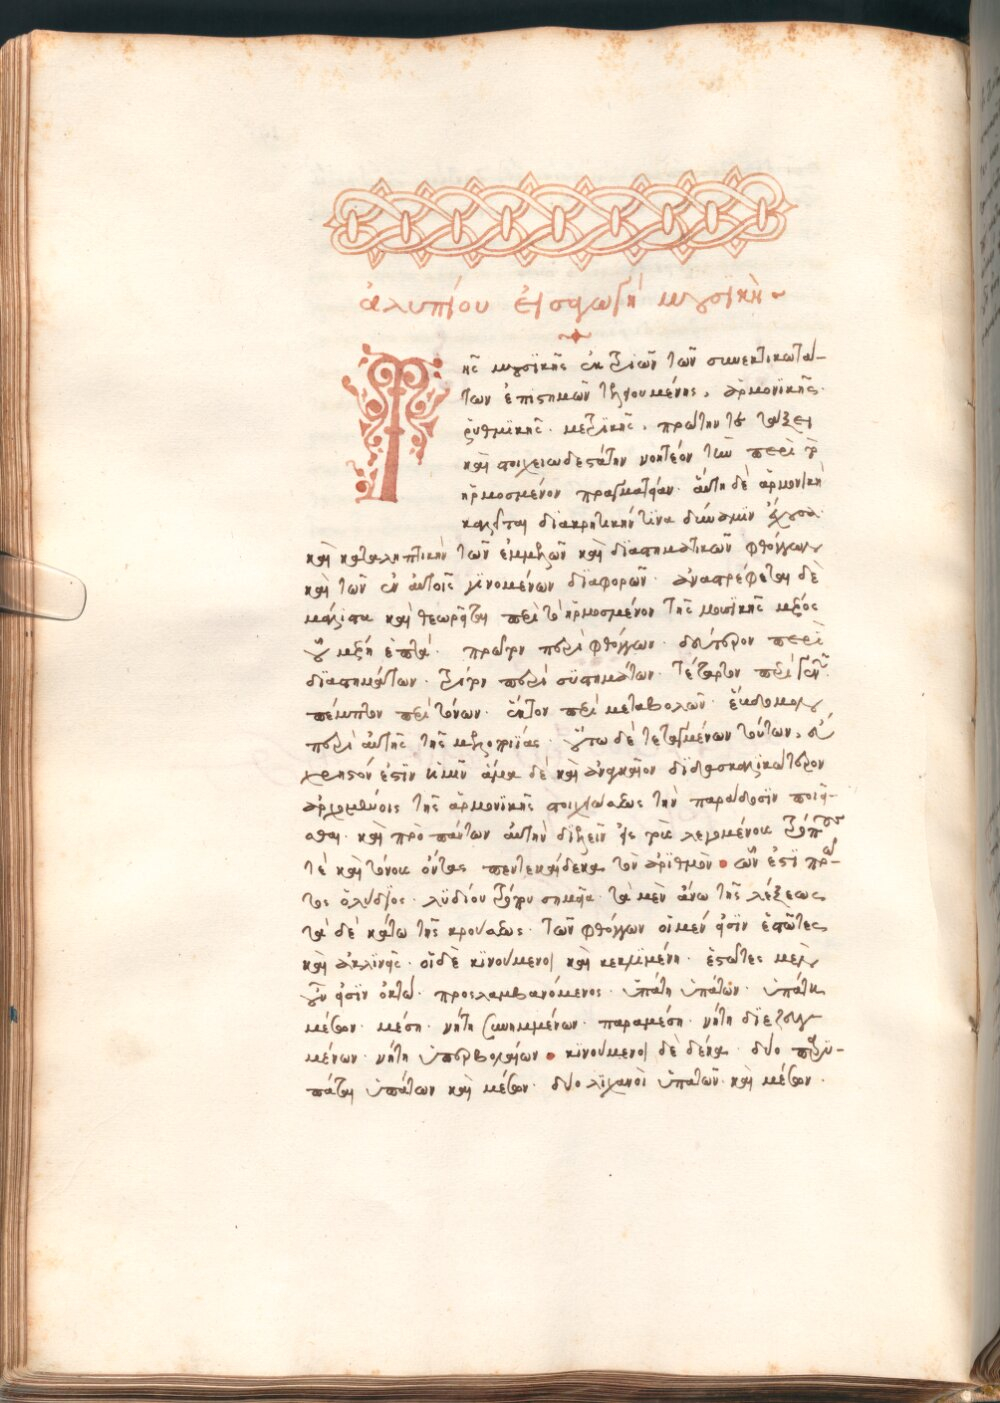 ἀλυπίου εἰσαγωγὴ μουσϊκὴ
Τῆς μουσϊκῆς ἐκ τριῶν τῶν συνεκτικωτά-
των ἐπιστημῶν τελουμένης, ἁρμονϊκῆς·
ῥυθμϊκῆς· μετρϊκῆς, πρώτην τῇ τάξει
καὶ στοιχειωδεστάτην νοητέον τὴν περὶ τὸ
ἡρμοσμένον πραγματείαν· αὕτη δὲ ἁρμονϊκὴ
καλεῖται διακρητικήν τϊνα δύναμϊν ἔχουσα
καὶ καταληπτικὴν τῶν ἐμμελῶν καὶ διαστηματικῶν φθόγγων
καὶ τῶν ἐν αὐτοῖς γϊνομένων διαφορῶν· ἀναστρέφεται δὲ
μάλιστα καὶ θεωρεῖται περὶ τὸ ἡρμοσμένον τῆς μουσϊκῆς μέρος
οὗ μέρη ἑπτά· πρῶτον περὶ φθόγγων· δεύτερον περὶ
διαστημάτων· τρίτον περὶ συστημάτων· τέταρτον περὶ γενῶν·
πέμπτον περὶ τόνων· ἕκτον περὶ μεταβολῶν· ἕβδομον
περὶ αὐτῆς τῆς μελοποιΐας· οὕτω δὲ τεταγμένων τούτων, εὖ
χρηστόν ἐστϊν ὑμῖν ἅμα δὲ καὶ ἀναγκαῖον διδασκαλικώτερον
ἀρχομένοις τῆς ἁρμονϊκῆς στοιχειώσεως τὴν παράδοσϊν ποιεῖ-
σθαι· καὶ πρὸ πάντων αὐτὴν διελεῖν εἰς τοὺς λεγομένους τρόπους
τὲ καὶ τόνους ὄντας πεντεκαίδεκα τὸν ἀρϊθμὸν • ὧν ἐστϊ πρῶ-
τος ὁ λύδϊος· λυδίου τρόπου σημεῖα· τὰ μὲν ἄνω τῆς λέξεως
τὰ δὲ κάτω τῆς κρούσεως· τῶν φθόγγων οἱ μέν εἰσϊν ἑστῶτες
καὶ ἀκλϊνεῖς· οἱ δὲ κϊνούμενοι καὶ κεκλϊμένη· ἑστῶτες μὲν
οὖν εἰσϊν ὀκτώ· προσλαμβανόμενος· ὑπάτη ὑπατῶν· ὑπάτη
μέσων· μέση· νήτη συνημμένων· παραμέση· νήτη διεζευγ
μένων· νήτη ὑπερβολαίων • κϊνούμενοι δὲ δέκα· δύο παρυ-
πάται ὑπάτων καὶ μέσων· δύο λϊχανοὶ ὑπατῶν καὶ μέσων·